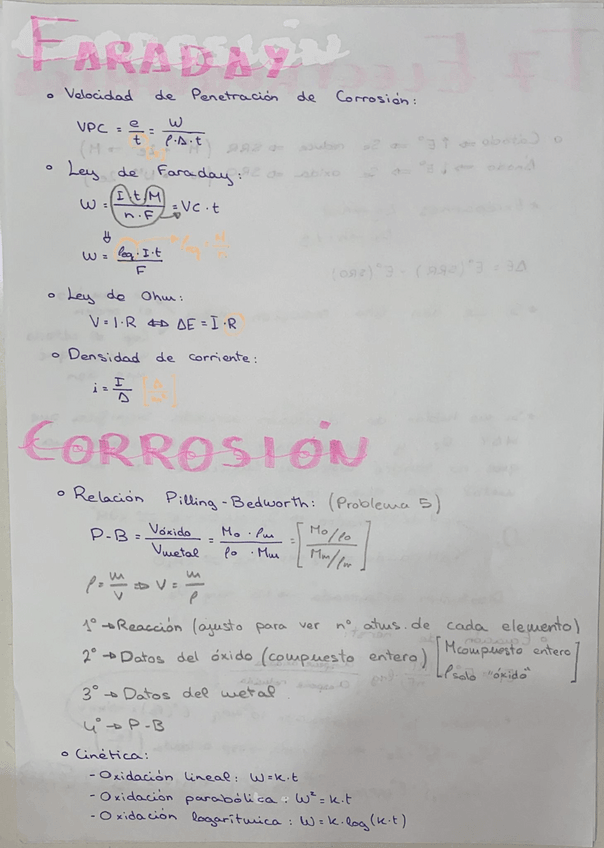 FARADAY
o Velocidad de Penetración de Corrosión:
VPC = e/t = W/ρ·A·t
o Ley de Faraday:
W = I\t\M/n·F = VC·t
⇓
W = Peq·I·t/F
o Ley de Ohm:
V = I·R ⇔ ΔE = I·R
o Densidad de corriente:
i = I/A
CORROSIÓN
o Relación Pilling-Bedworth: (Problema 5)
P-B = Vóxido/Vmetal = Mo·ρm/ρo·Mm = [Mo/ρo/Mm/ρm]
ρ = m/V ⇒ V = m/ρ
1º → Reacción (ajusto para ver nº atms. de cada elemento)
2º → Datos del óxido (compuesto entero) [Mcompuesto entero
ρsolo "óxido"]
3º → Datos del metal
4º → P-B
o Cinética:
- Oxidación lineal: W=k·t
- Oxidación parabólica: W²=k·t
- Oxidación logarítmica: W=k·log(k·t)